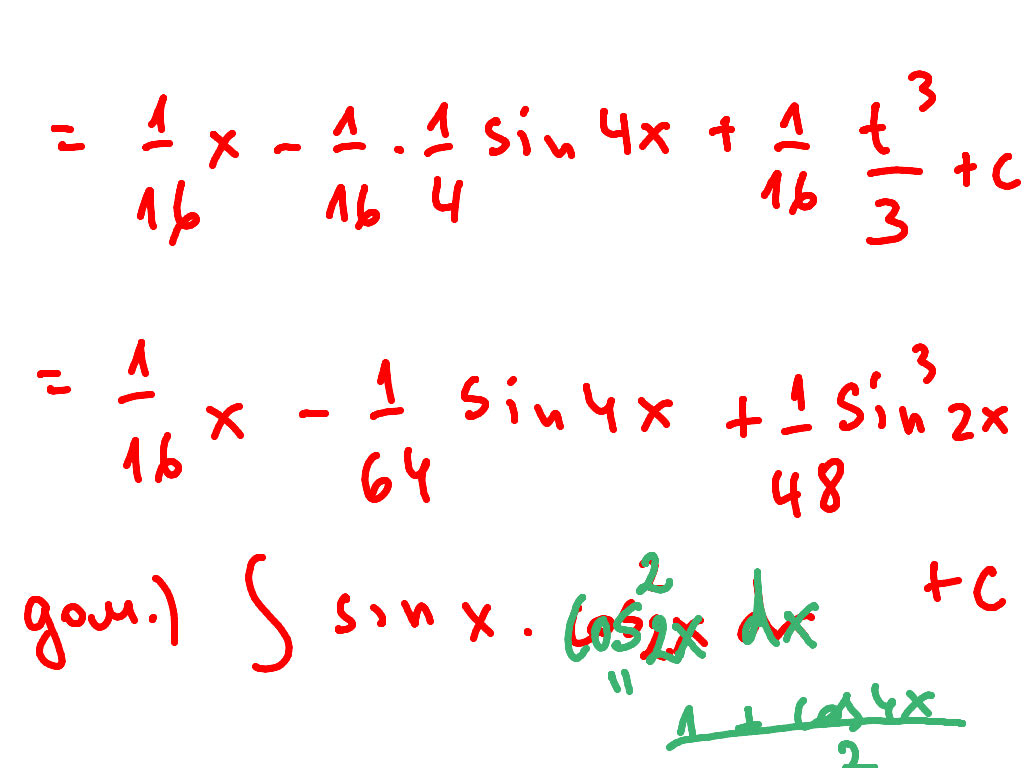 = 1/16 x - 1/16 · 1/4 sin 4x + 1/16 t³/3 + c
= 1/16 x - 1/64 sin 4x + 1/48 sin³ 2x
+ c
дом.) ∫ sin x · cos² 2x dx
"
1 + cos 4x / 2